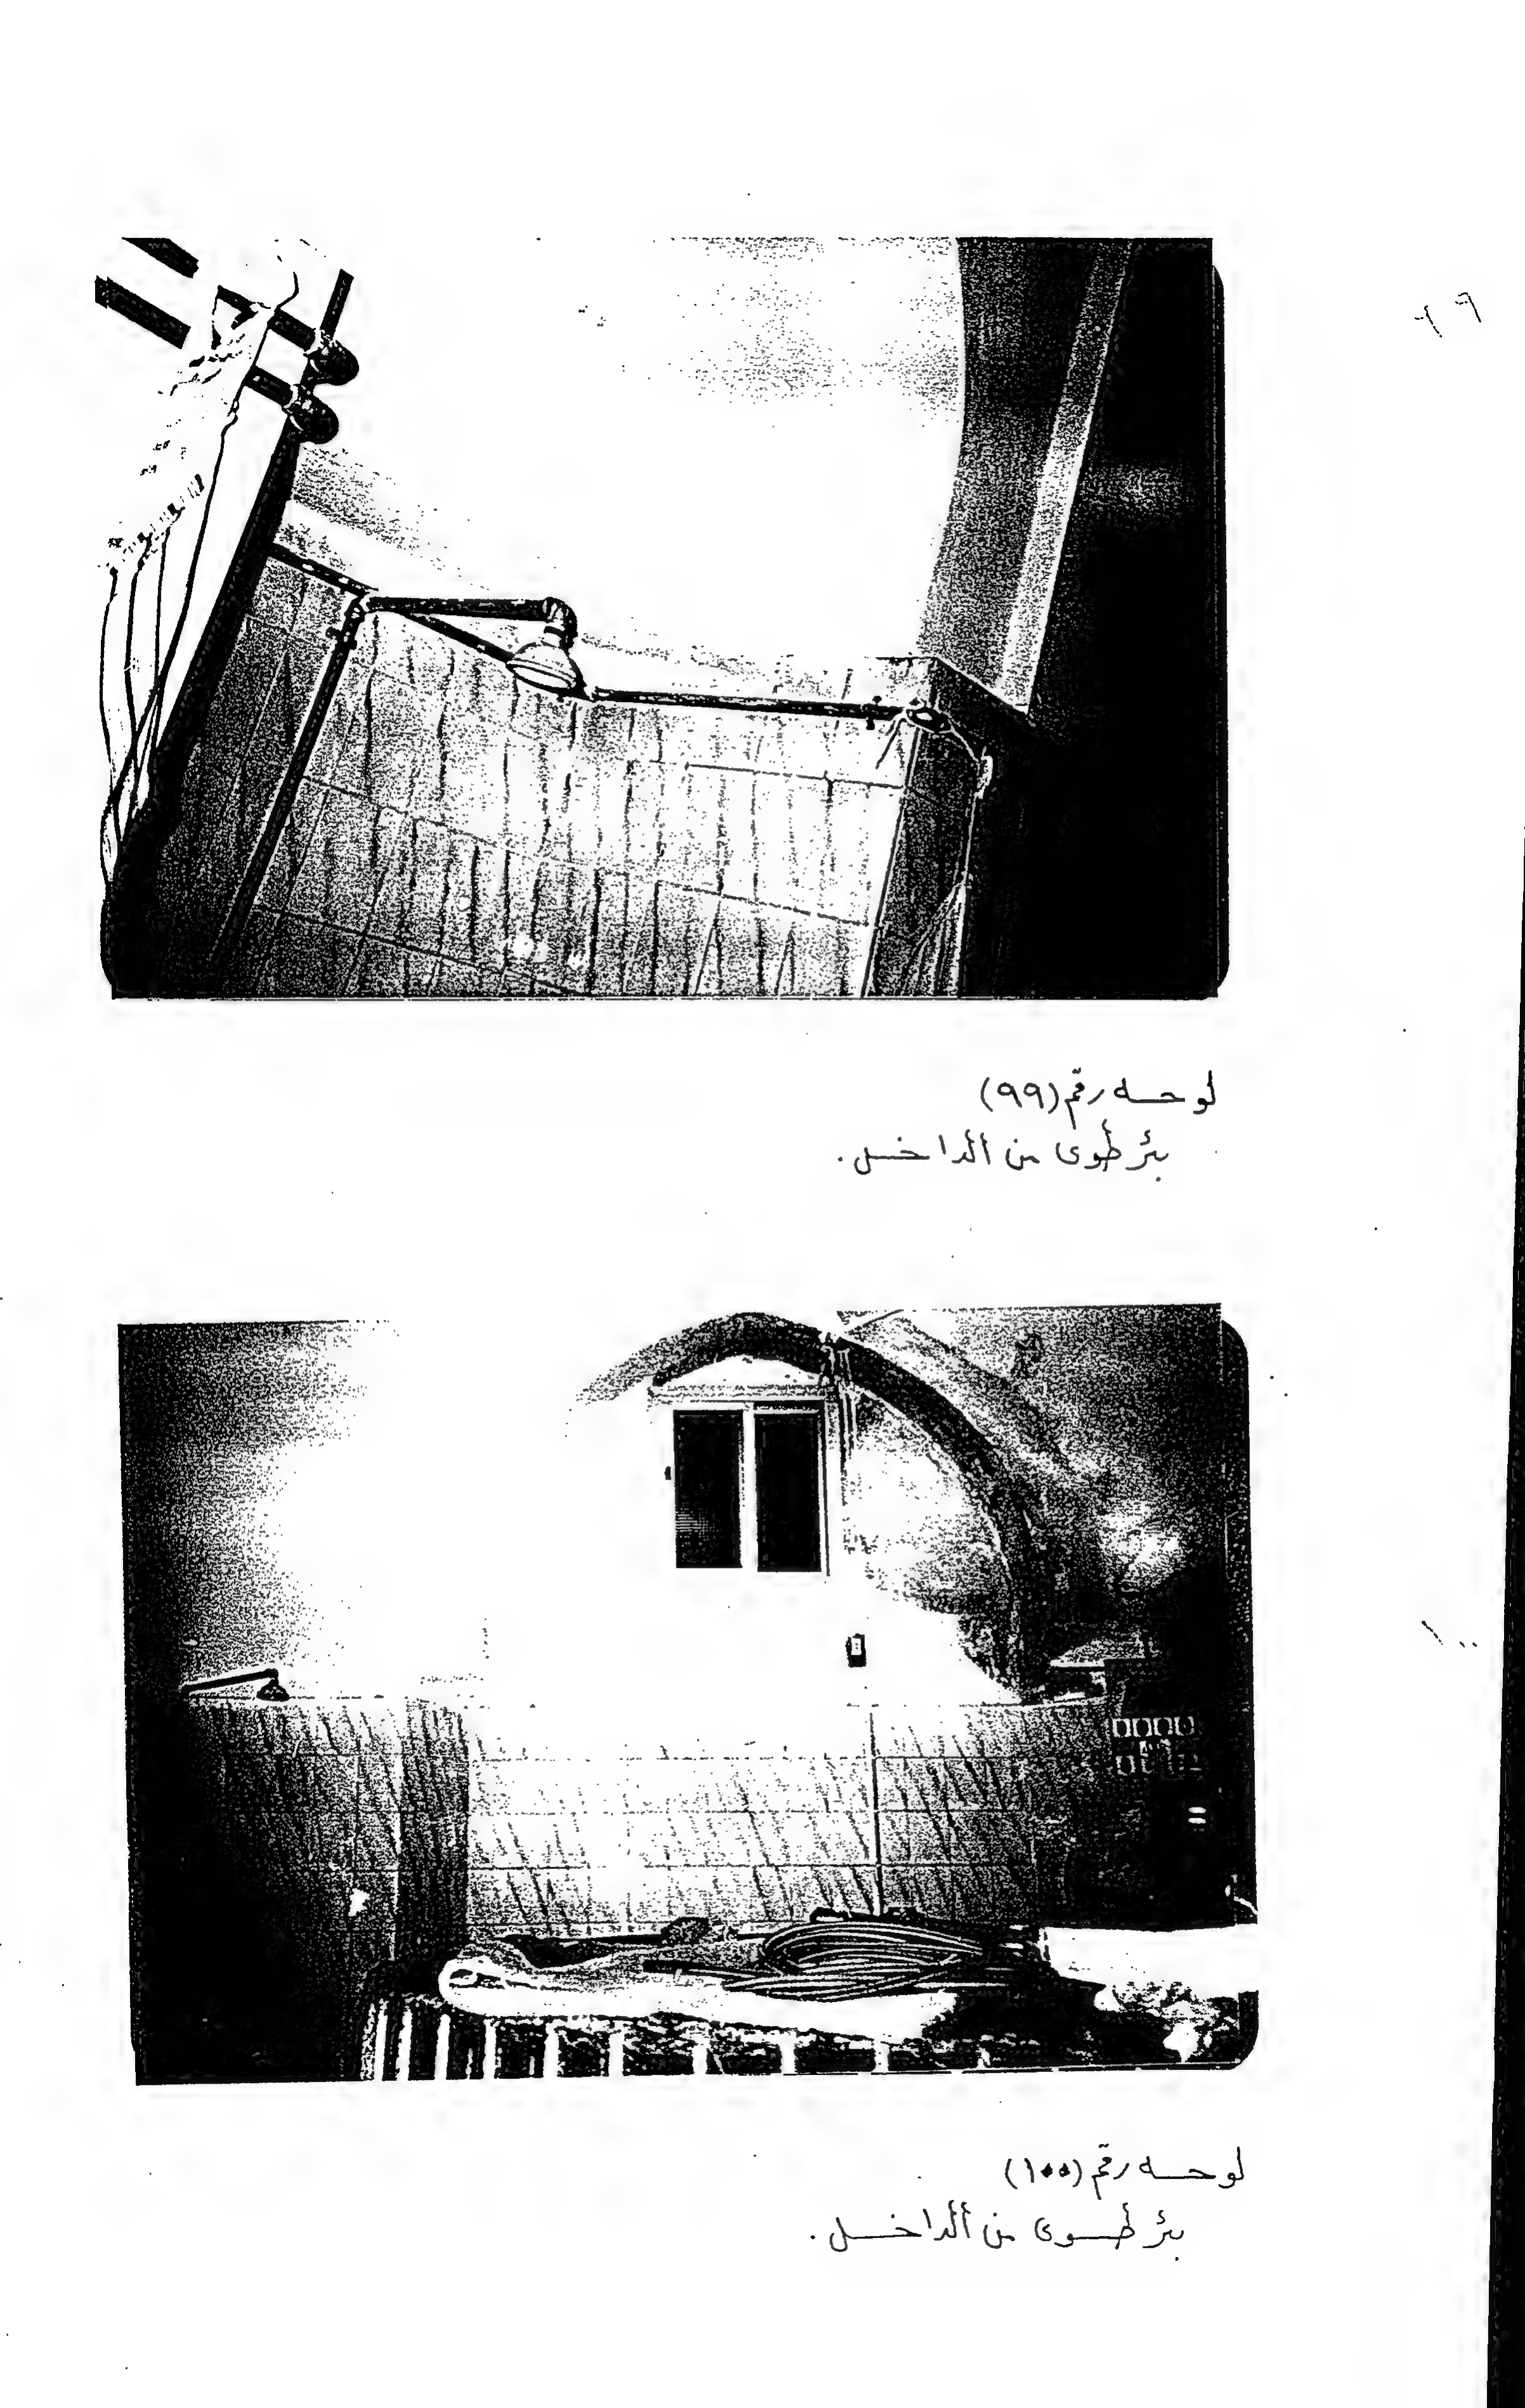 ٩٩
لوحه رقم (٩٩)
بئر طوى من الداخل.
١٠٠
لوحه رقم (١٠٠)
بئر طوى من الداخل.